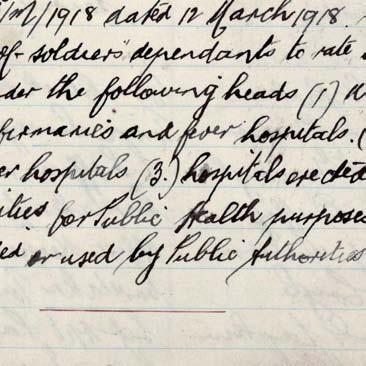 /M/1918 dated 12 March 1918.
of soldiers' dependants to rate
der the following heads (1) W
firmaries and fever hospitals. (
er hospitals (3.) hospitals erected
ities for Public Health purposes
ed or used by Public Authorities